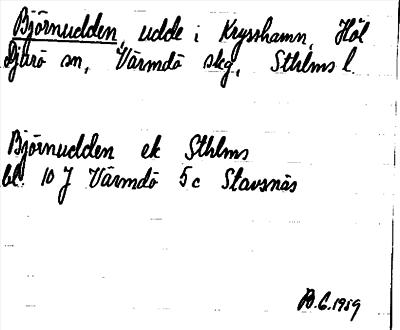 Björnudden, udde i Krysshamn, Höl
Djurö sn, Värmdö skg, Sthlms l.
Björnudden ek Sthlms
bl. 10 J Värmdö 5c Stavsnäs
B.G. 1959